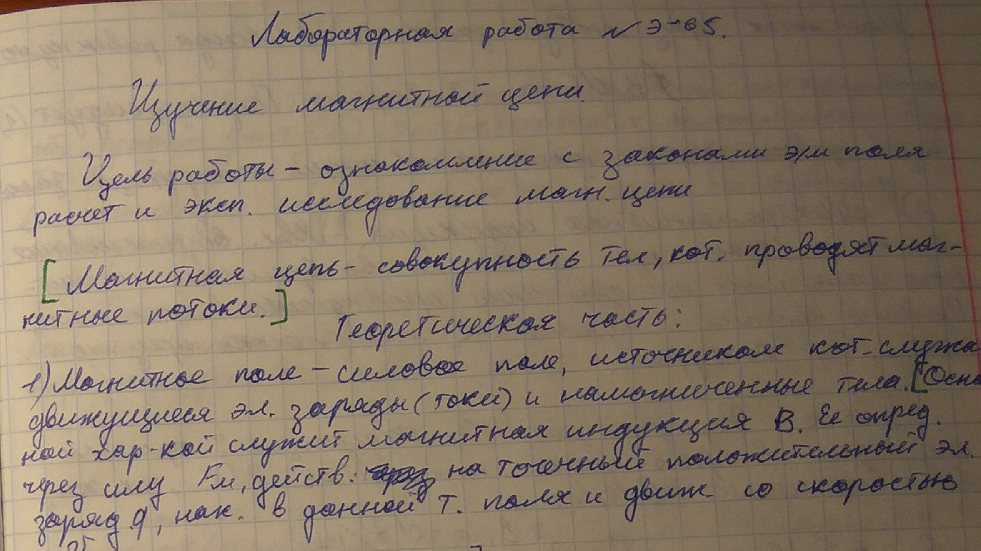 Лабораторная работа № Э-65.
Изучение магнитной цепи.
Цель работы - ознакомление с законами э/м поля
расчет и эксп. исследование магн. цепи
[Магнитная цепь - совокупность тел, кот. проводят маг-
нитные потоки.]
Теоретическая часть:
1) Магнитное поле - силовое поле, источником кот. служа
движущиеся эл. заряды (токи) и намагниченные тела. [Осно
ной хар-кой служит магнитная индукция B. Ее опред.
через силу Fм, действ. на точечный положительный эл.
заряд q, нах. в данной т. поля и движ. со скоростью